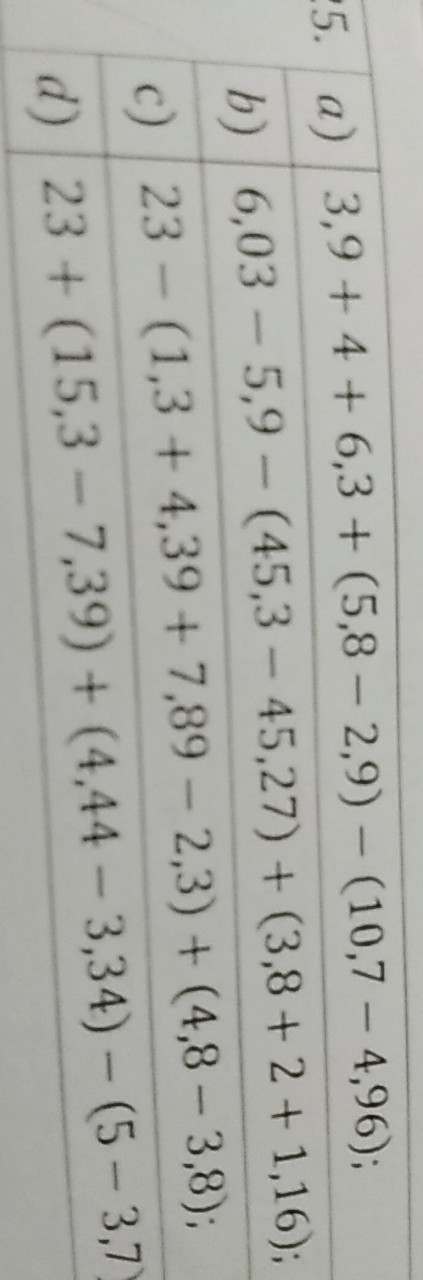 a) 3,9 + 4 + 6,3 + (5,8 – 2,9) – (10,7 – 4,96);
b) 6,03 – 5,9 – (45,3 – 45,27) + (3,8 + 2 + 1,16);
c) 23 – (1,3 + 4,39 + 7,89 – 2,3) + (4,8 – 3,8);
d) 23 + (15,3 – 7,39) + (4,44 – 3,34) – (5 – 3,7)